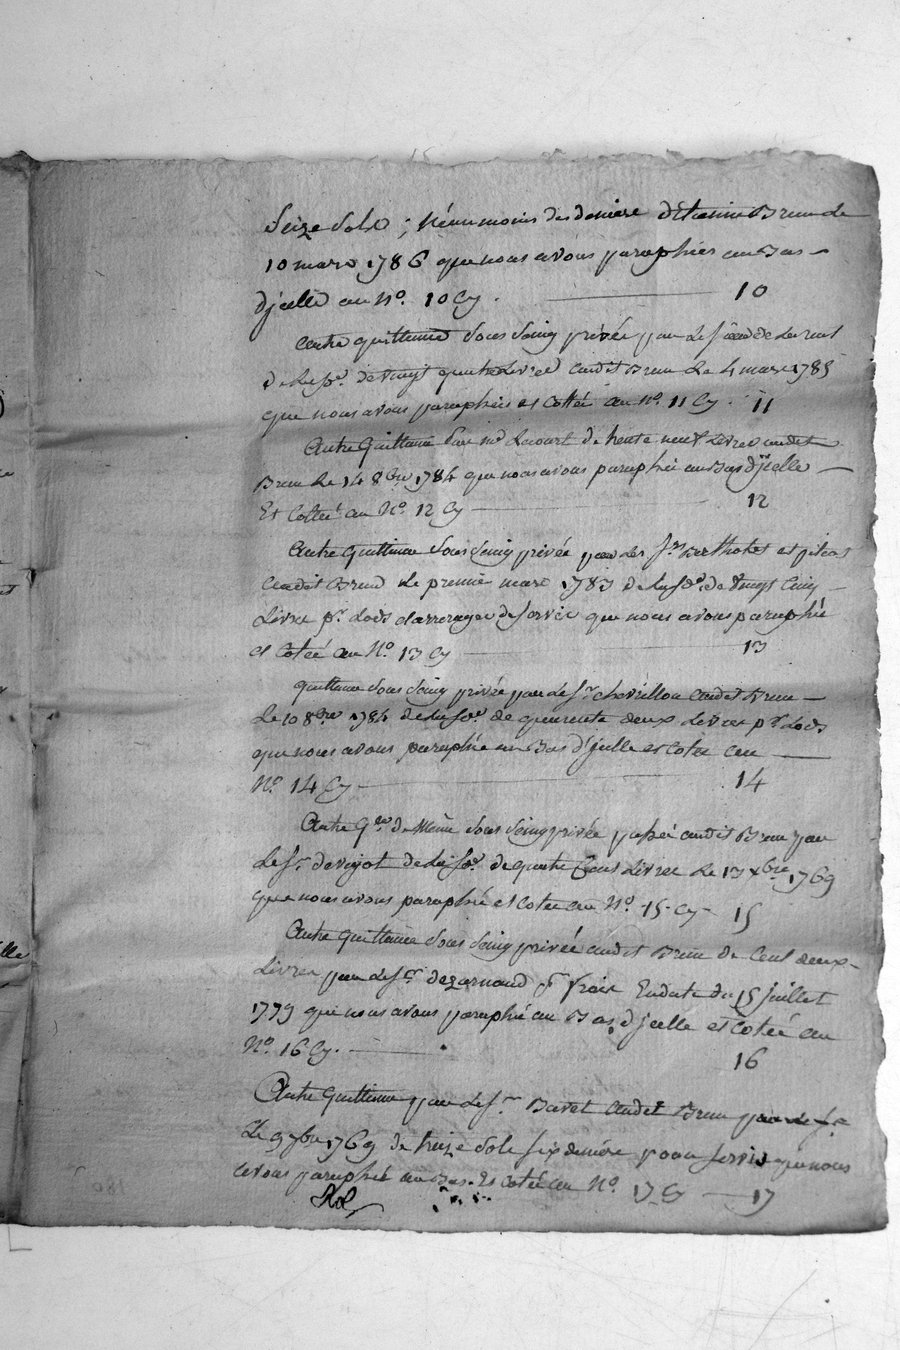 Seize Sols ; Néanmoins des deniers d'Etienne Brun le
10 mars 1786 que nous avons paraphés au Bas
d'jcelle au N°. 10 Cy. 10
Autre quittance Sous Seing privée par le Sr
de la so.e de vingt quatre Livres audit Brun Le 4 mars 1785
que nous avons paraphée et Cottée au N°. 11 Cy. 11
Autre Quittance d'un Me Lacourt de trente neuf Livres audit
Brun Le 14 8bre 1784 que nous avons paraphé au Bas d'jcelle
Et Cottée au N°. 12 Cy 12
Autre Quittance Sous Seing privée par les Srs Bertholet et
audit Brun Le premier mars 1783 de la so.e de Vingt Cinq
Livres pr. Lods et arrerages de servis que nous avons paraphé
et Cotée au N°. 13 Cy 13
quittance Sous Seing privée par le Sr. chevrillon audit Brun
Le 10 8bre 1784 de la so.e de quarente deux Livres pr. Lods
que nous avons paraphée au Bas d'jcelle et Cotée au
N°. 14 Cy 14
Autre Q.ce de Même Sous Seing privée passée audit Brun par
Le Sr. de vijot de la so.e de quatre Cent Livres Le 13 xbre 1769
que nous avons paraphé et Cotée au N°. 15. Cy 15
Autre Quittance Sous Seing privée audit Brun de Cent deux
Livres par le Sr. dezarnaud En datte du 15 juillet
1779 que nous avons paraphé au Bas d'jcelle et Cotée au
N°. 16 Cy. 16
Autre Quittance par le Sr. Bavet audit Brun par le Sr
Le 9 7bre 1769 de treize Sols six deniers pour servis que nous
avons paraphée au Bas. Et Cotée au N°. 17 Cy 17